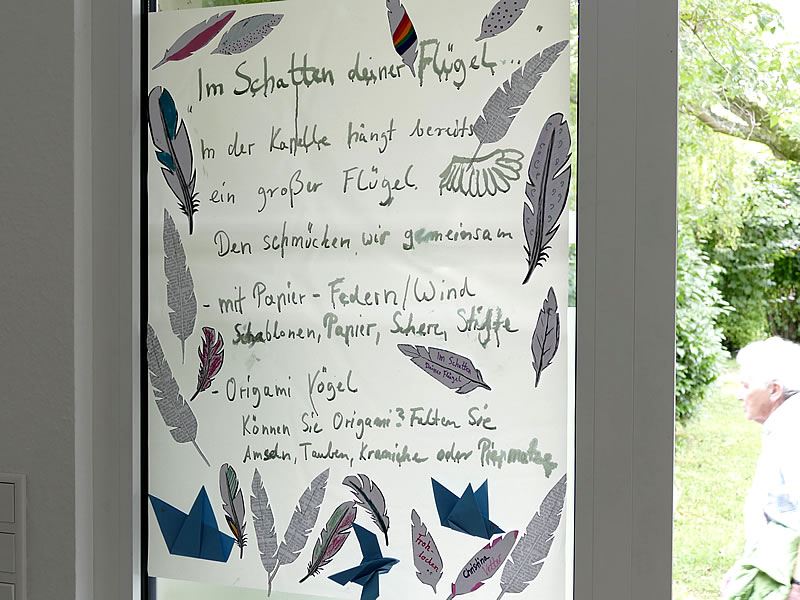 „Im Schatten deiner Flügel...
In der Kapelle hängt bereits
ein großer Flügel.
Den schmücken wir gemeinsam
- mit Papier-Federn/Wind
Schablonen, Papier, Schere, Stifte
Im Schatten
Deiner Flügel
- Origami Vögel
Können Sie Origami? Falten Sie
Amseln, Tauben, Kraniche oder Piepmatze
Froh-
locken
Christina